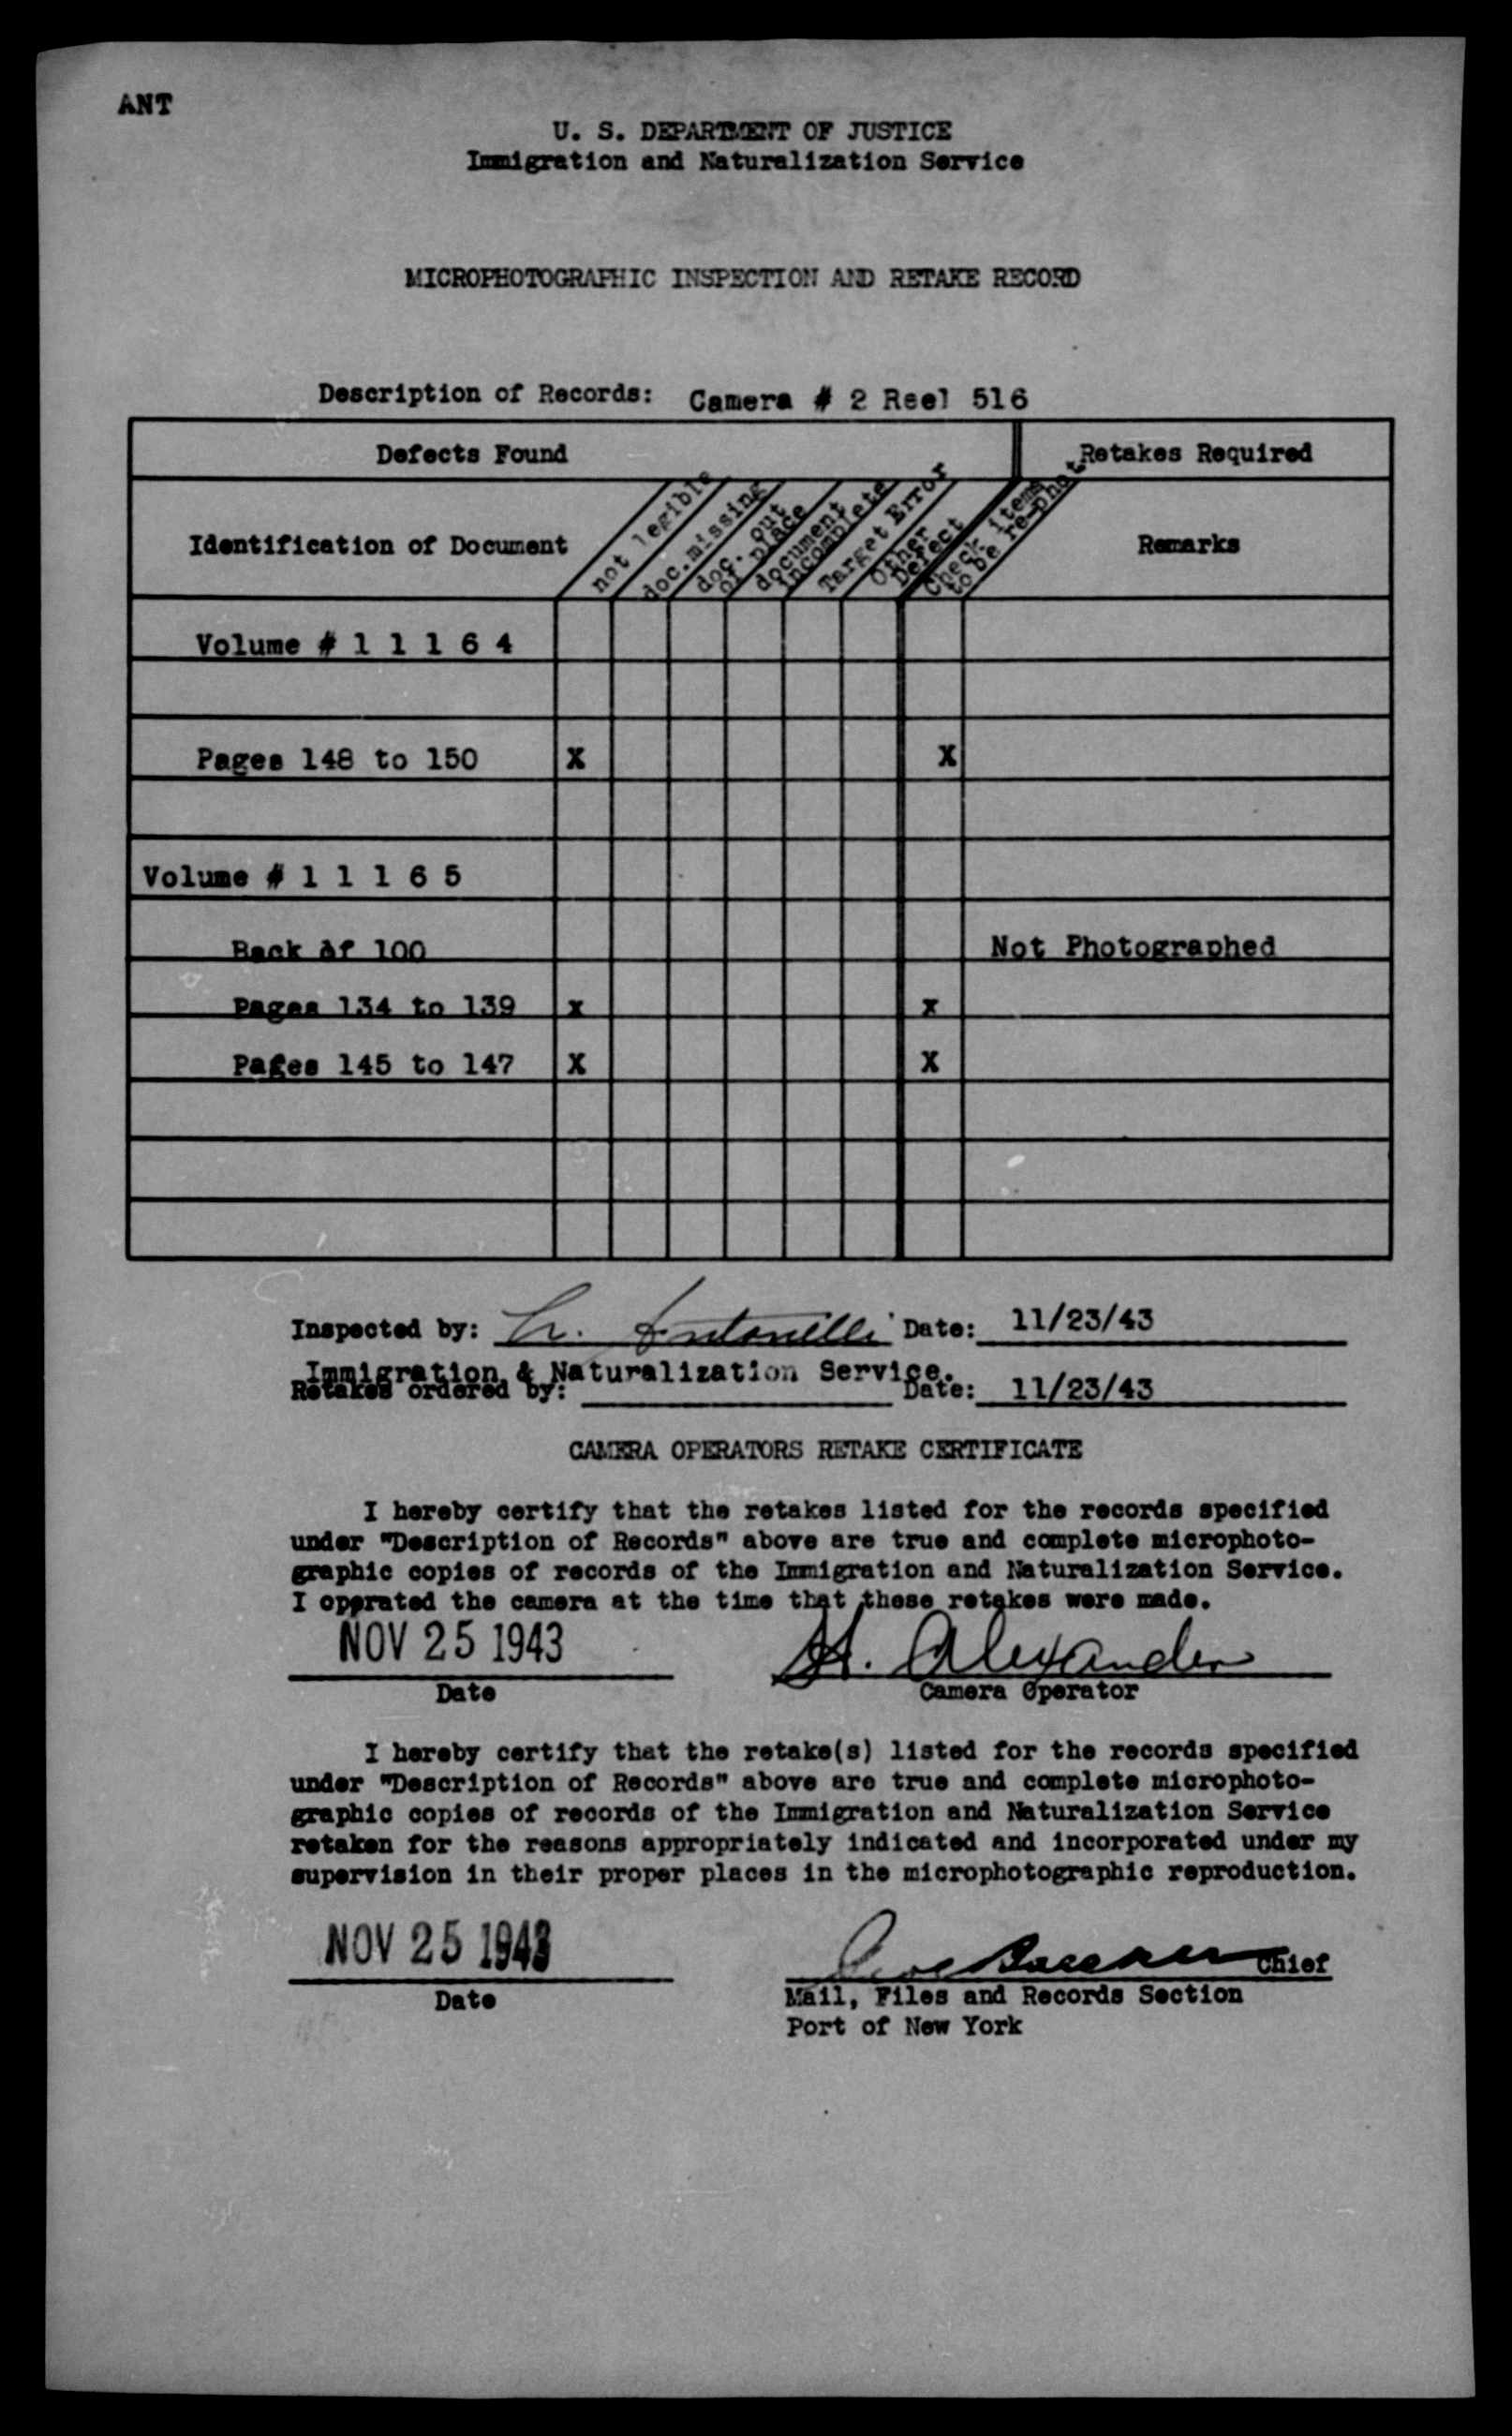 ANT
U. S. DEPARTMENT OF JUSTICE
Immigration and Naturalization Service
MICROPHOTOGRAPHIC INSPECTION AND RETAKE RECORD
Description of Records: Camera # 2 Reel 516
Defects Found Retakes Required
Identification of Document
not legible
doc. missing
doc. out
of place
document
incomplete
Target Error
Other
Defect
Check items
to be re-phot
Remarks
Volume # 1 1 1 6 4
Pages 148 to 150 X X
Volume # 1 1 1 6 5
Back of 100 Not Photographed
Pages 134 to 139 x x
Pages 145 to 147 X X
Inspected by: Antonelli Date: 11/23/43
Immigration & Naturalization Service.
Retakes ordered by: Date: 11/23/43
CAMERA OPERATORS RETAKE CERTIFICATE
I hereby certify that the retakes listed for the records specified
under "Description of Records" above are true and complete microphoto-
graphic copies of records of the Immigration and Naturalization Service.
I operated the camera at the time that these retakes were made.
NOV 25 1943 H. Alexander
Date Camera Operator
I hereby certify that the retake(s) listed for the records specified
under "Description of Records" above are true and complete microphoto-
graphic copies of records of the Immigration and Naturalization Service
retaken for the reasons appropriately indicated and incorporated under my
supervision in their proper places in the microphotographic reproduction.
NOV 25 1943 Chief
Date Mail, Files and Records Section
Port of New York